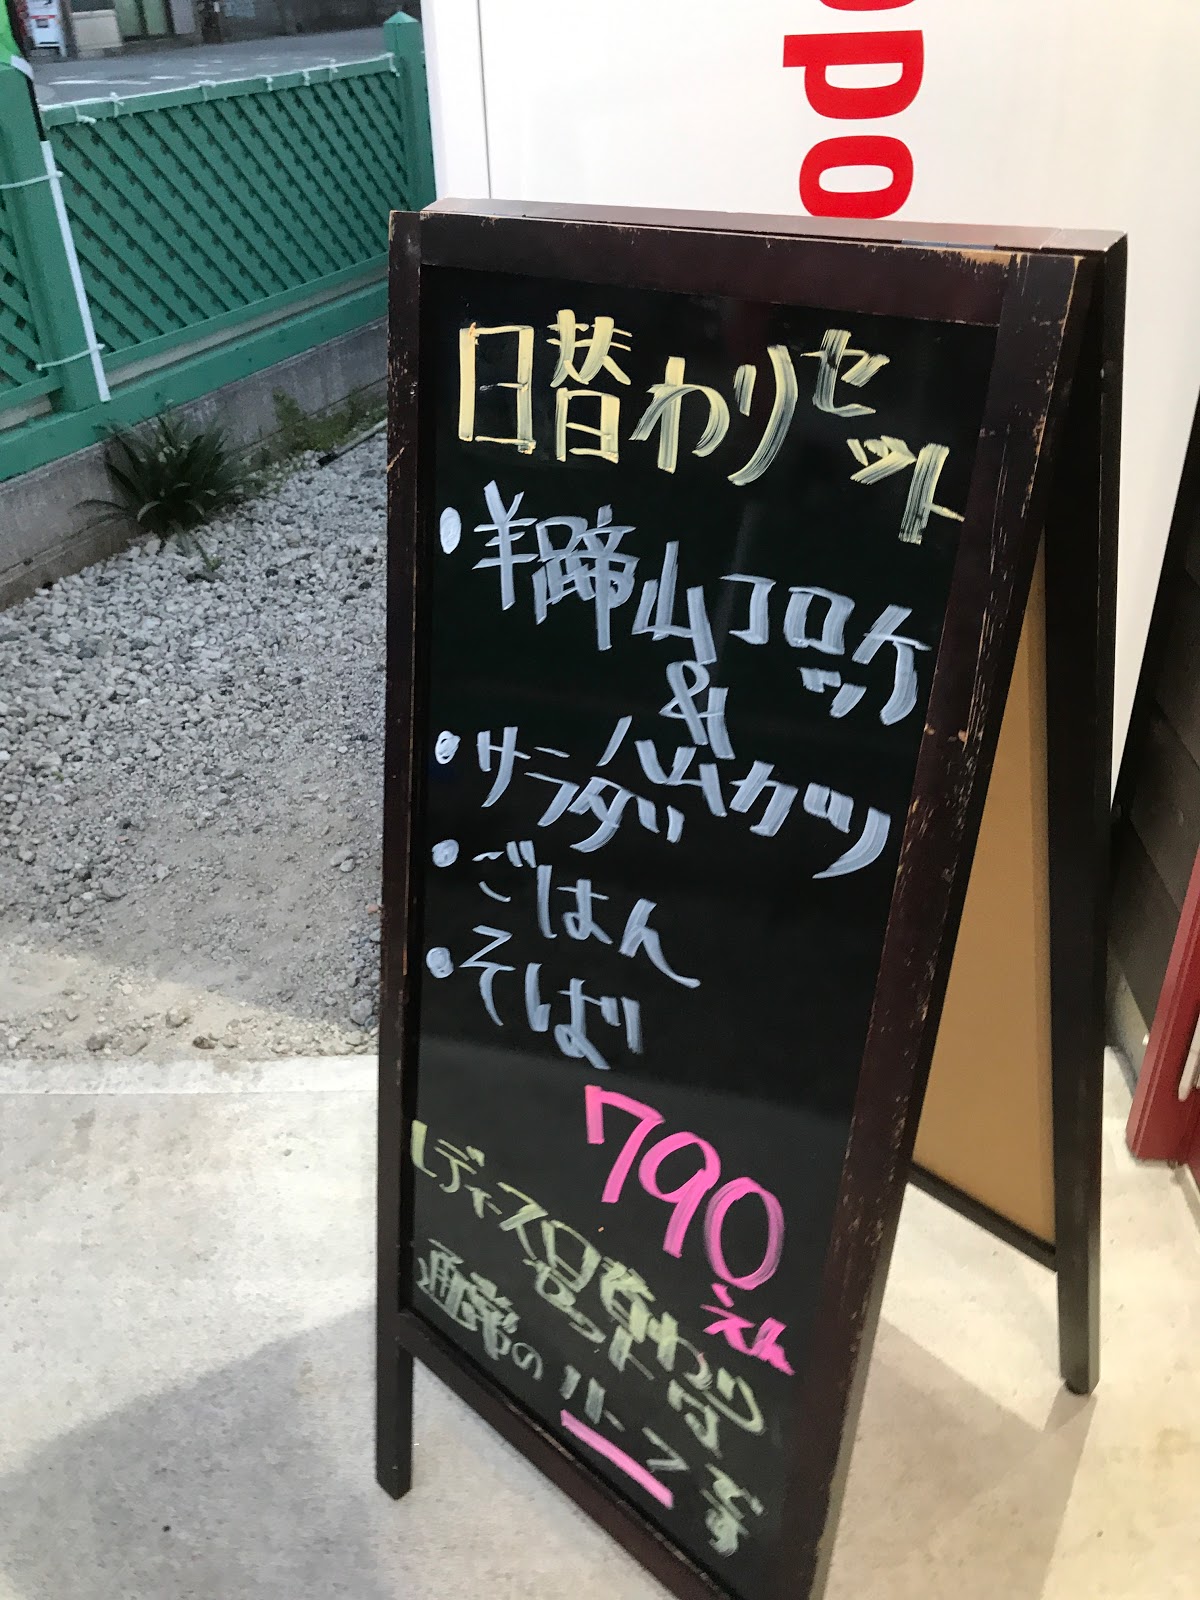 ppo
日替わりセット
・羊蹄山コロッケ
&
ハムカツ
・サラダ
・ごはん
・そば
790
えん
レディース日替わり
セットは
通常のハーフです